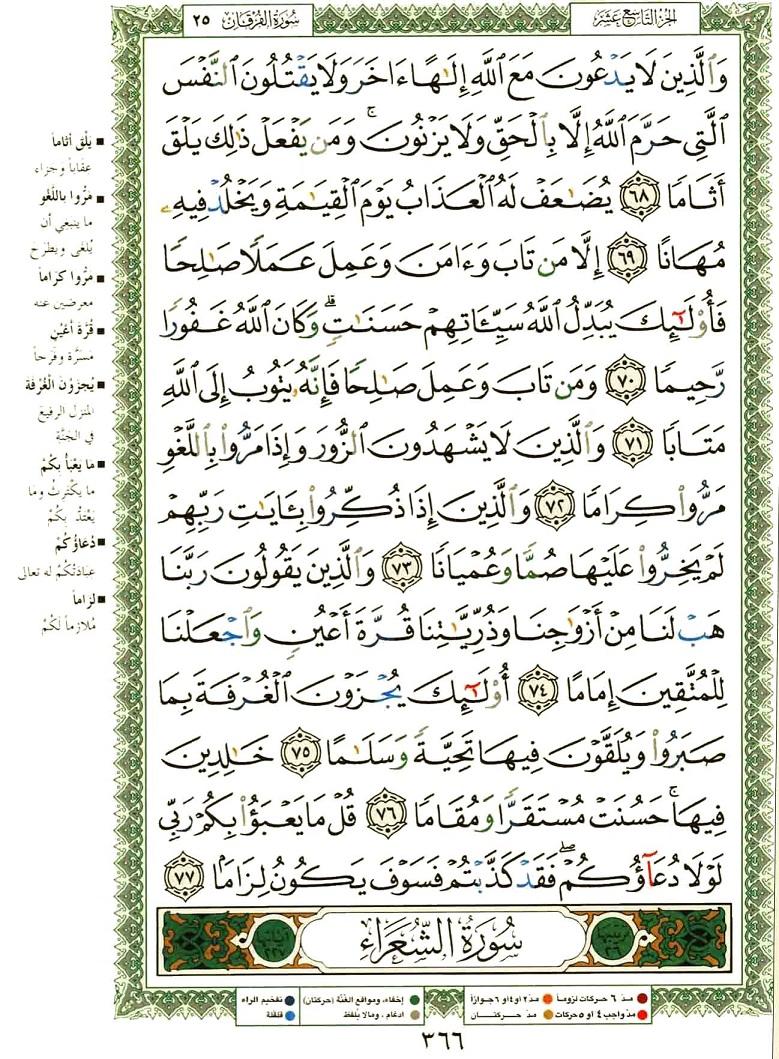 الجزء التاسع عشر
سُورَةُ الفُرْقَان ٢٥
وَٱلَّذِينَ لَا يَدْعُونَ مَعَ ٱللَّهِ إِلَٰهًا ءَاخَرَ وَلَا يَقْتُلُونَ ٱلنَّفْسَ
ٱلَّتِى حَرَّمَ ٱللَّهُ إِلَّا بِٱلْحَقِّ وَلَا يَزْنُونَ ۚ وَمَن يَفْعَلْ ذَٰلِكَ يَلْقَ
أَثَامًا ٦٨ يُضَٰعَفْ لَهُ ٱلْعَذَابُ يَوْمَ ٱلْقِيَٰمَةِ وَيَخْلُدْ فِيهِۦ
مُهَانًا ٦٩ إِلَّا مَن تَابَ وَءَامَنَ وَعَمِلَ عَمَلًا صَٰلِحًا
فَأُو۟لَٰٓئِكَ يُبَدِّلُ ٱللَّهُ سَيِّـَٔاتِهِمْ حَسَنَٰتٍ ۗ وَكَانَ ٱللَّهُ غَفُورًا
رَّحِيمًا ٧٠ وَمَن تَابَ وَعَمِلَ صَٰلِحًا فَإِنَّهُۥ يَتُوبُ إِلَى ٱللَّهِ
مَتَابًا ٧١ وَٱلَّذِينَ لَا يَشْهَدُونَ ٱلزُّورَ وَإِذَا مَرُّوا۟ بِٱللَّغْوِ
مَرُّوا۟ كِرَامًا ٧٢ وَٱلَّذِينَ إِذَا ذُكِّرُوا۟ بِـَٔايَٰتِ رَبِّهِمْ
لَمْ يَخِرُّوا۟ عَلَيْهَا صُمًّا وَعُمْيَانًا ٧٣ وَٱلَّذِينَ يَقُولُونَ رَبَّنَا
هَبْ لَنَا مِنْ أَزْوَٰجِنَا وَذُرِّيَّٰتِنَا قُرَّةَ أَعْيُنٍ وَٱجْعَلْنَا
لِلْمُتَّقِينَ إِمَامًا ٧٤ أُو۟لَٰٓئِكَ يُجْزَوْنَ ٱلْغُرْفَةَ بِمَا
صَبَرُوا۟ وَيُلَقَّوْنَ فِيهَا تَحِيَّةً وَسَلَٰمًا ٧٥ خَٰلِدِينَ
فِيهَا ۚ حَسُنَتْ مُسْتَقَرًّا وَمُقَامًا ٧٦ قُلْ مَا يَعْبَؤُا۟ بِكُمْ رَبِّى
لَوْلَا دُعَآؤُكُمْ ۖ فَقَدْ كَذَّبْتُمْ فَسَوْفَ يَكُونُ لِزَامًۢا ٧٧
سُورَةُ الشُّعَرَاءِ
يَلْقَ أثاماً
عقاباً وجزاء
مَرُّوا باللَّغْو
ما ينبغي أن
يُلغى ويطرح
مَرُّوا كِرَاماً
معرضين عنه
قُرَّة أَعْيُنٍ
مَسَرَّة وفَرحاً
يُجزَوْن الغُرْفَة
المنزل الرفيع
في الجَنَّة
مَا يَعْبَأُ بِكُمْ
ما يكْتَرِثُ وما
يَعْتَدُّ بِكُمْ
دُعَاؤُكُمْ
عبَادتكُمْ له تعالى
لِزَاماً
مُلازِماً لَكُمْ
مدّ ٦ حركات لزوماً
مدّ ٢ أو ٤ أو ٦ جوازاً
إخفاء، ومواقع الغُنَّة (حركتان)
تفخيم الراء
مدّ واجب ٤ أو ٥ حركات
مدّ حركتان
ادغام، ومالا يُلفَظ
قلقلة
٣٦٦